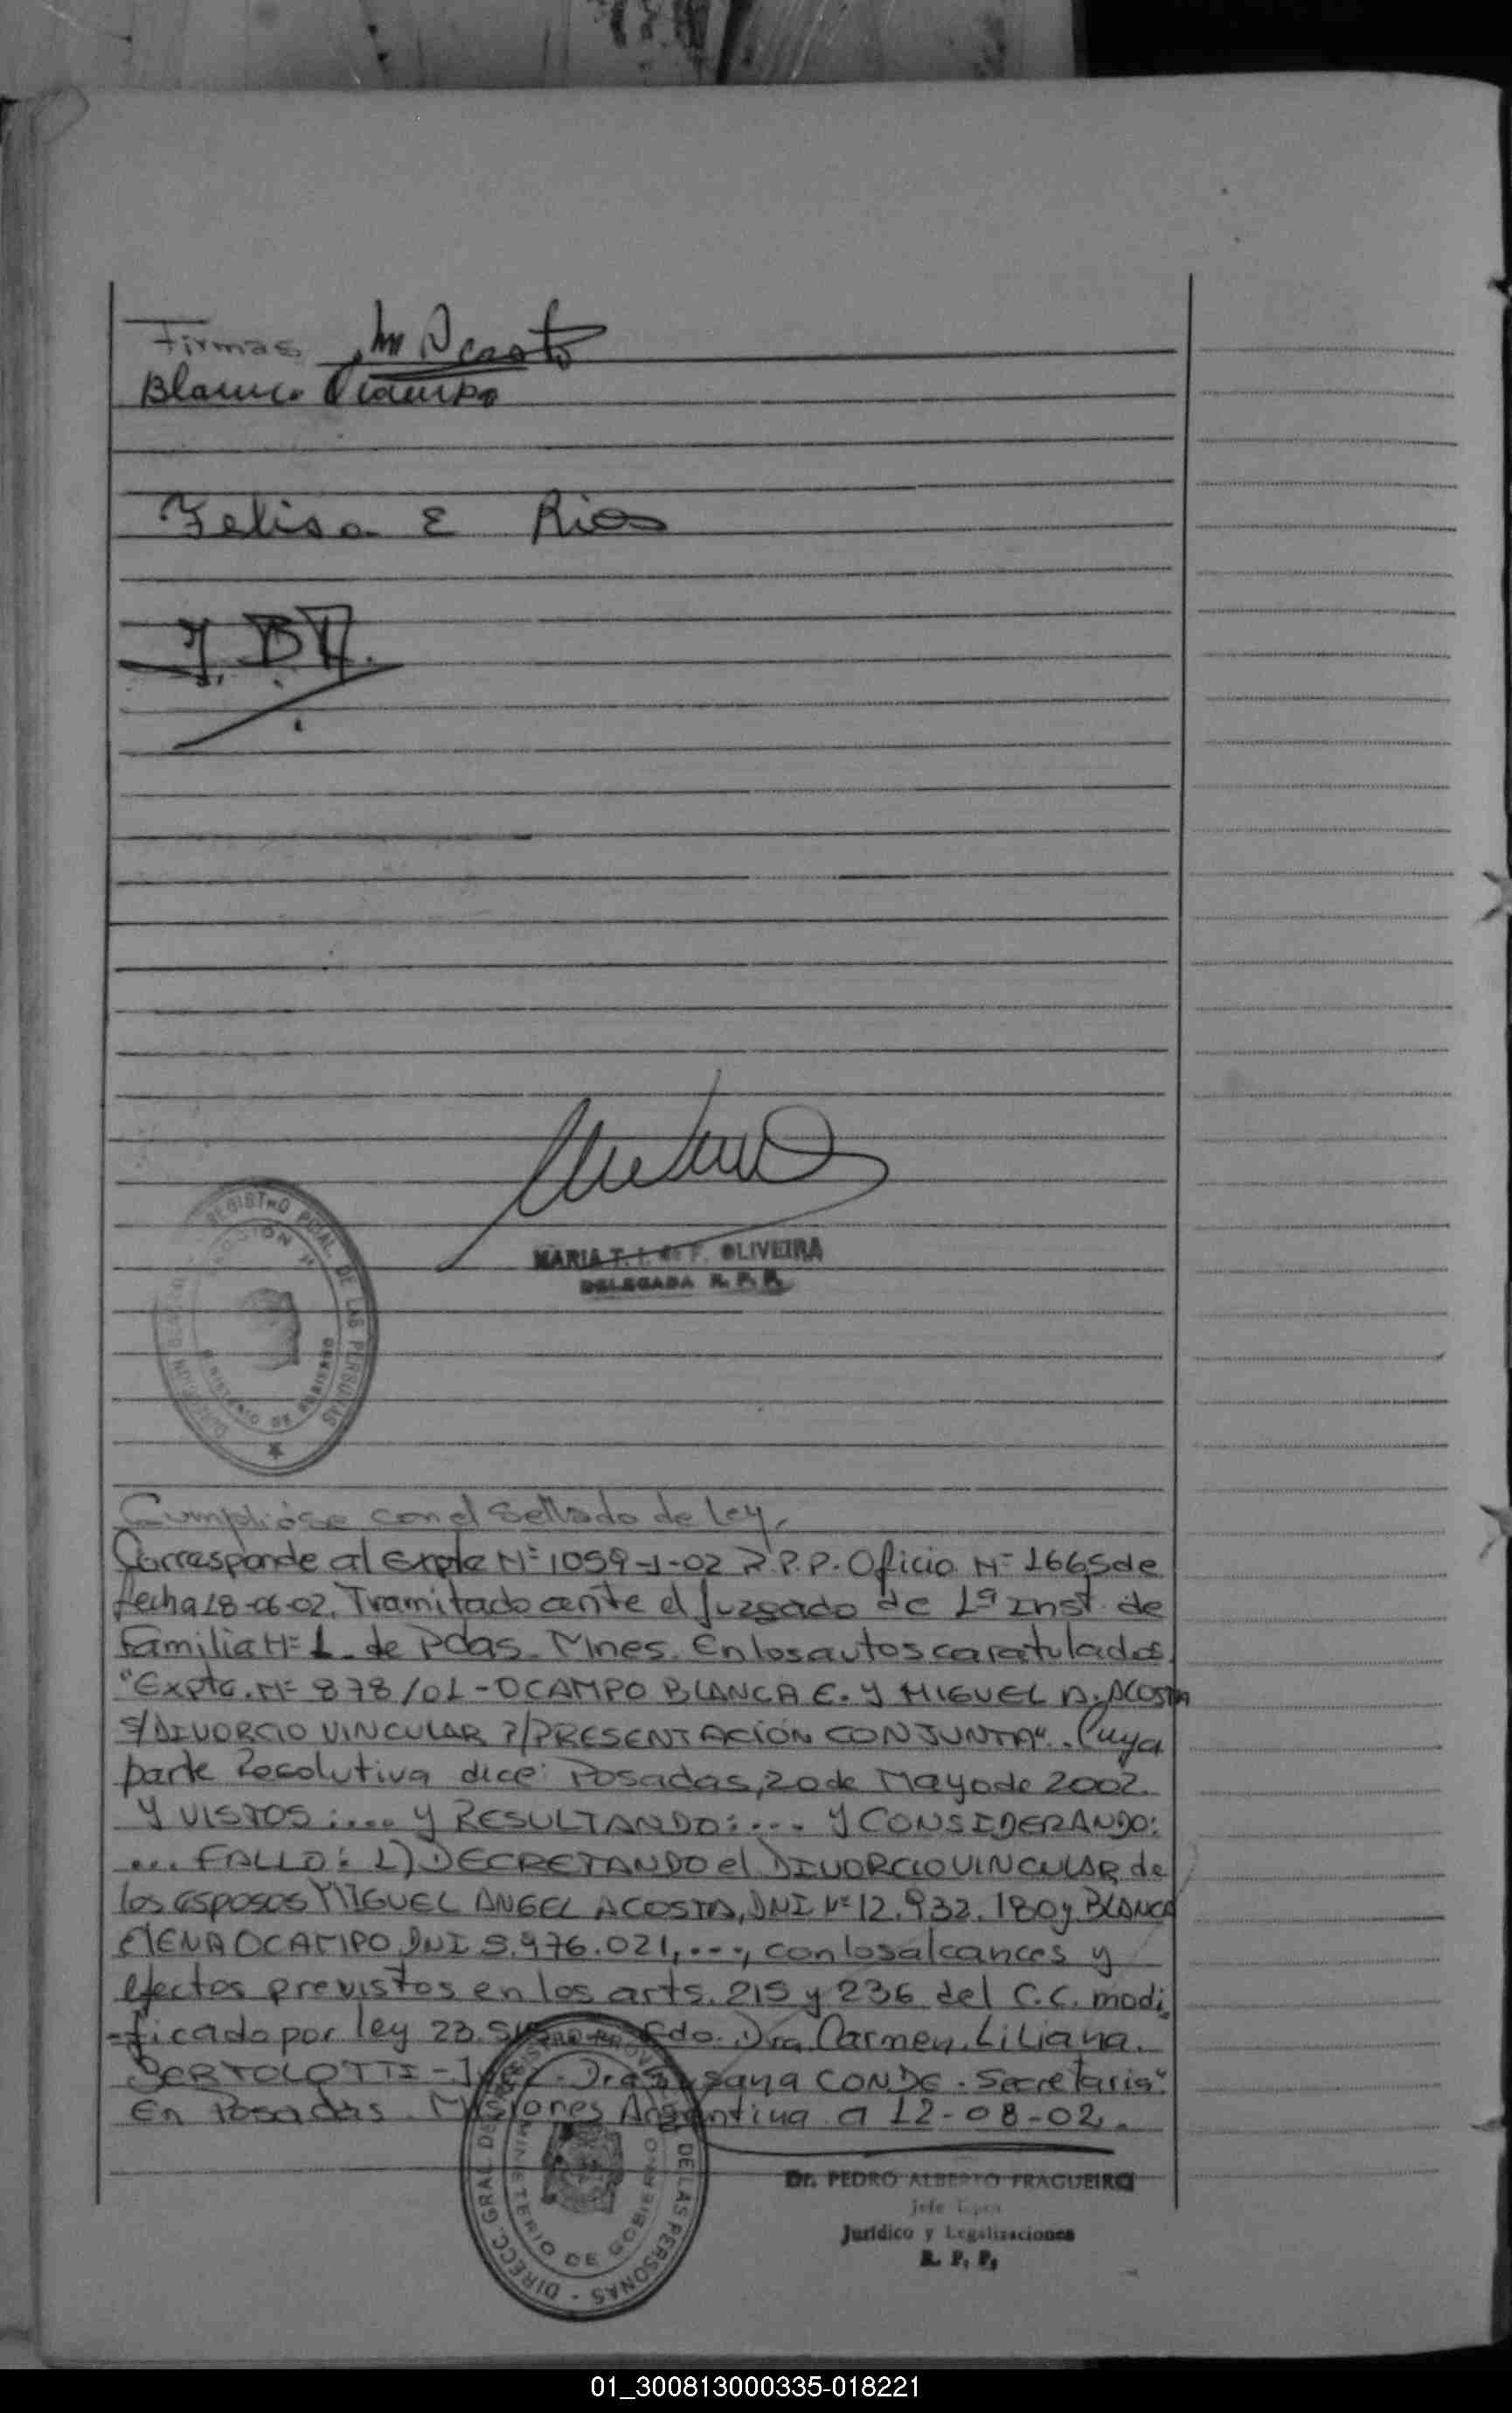 Firmas
Blanca Ocampo
Felisa E Rios
REGISTRO PCIAL. DE LAS PERSONAS
MINISTERIO DE GOBIERNO
MARIA T. I. de F. OLIVEIRA
DELEGADA R. P. P.
Cumplióse con el Sellado de Ley.
Corresponde al Expte Nº 1059-1-02 R.P.P. Oficio Nº 1665 de
fecha 18-06-02. Tramitado ante el Juzgado de 1ª Inst. de
Familia Nº 1. de Pdas. Mnes. En los autos caratulados
"Expte. Nº 878/01-OCAMPO BLANCA E. Y MIGUEL A. ACOSTA
S/DIVORCIO VINCULAR P/PRESENTACIÓN CONJUNTA". Cuya
parte Resolutiva dice: Posadas, 20 de Mayo de 2002.
Y VISTOS:.... Y RESULTANDO:... Y CONSIDERANDO:
... FALLO: 1) DECRETANDO el DIVORCIO VINCULAR de
los esposos MIGUEL ANGEL ACOSTA, DNI Nº 12.932.180 y BLANCA
ELENA OCAMPO DNI 5.976.021,..., con los alcances y
efectos previstos en los arts. 215 y 236 del C.C. modi
-ficado por ley Fdo. Dra. Carmen Liliana
BERTOLOTTI - Juez - Dra. Susana CONDE. Secretaria"
En Posadas. Misiones Argentina a 12-08-02.
DIRECC. GRAL. DEL REGISTRO PROV. DE LAS PERSONAS
MINISTERIO DE GOBIERNO
Dr. PEDRO ALBERTO FRAGUEIRO
Jefe
Jurídico y Legalizaciones
R. P. P.
01_300813000335-018221